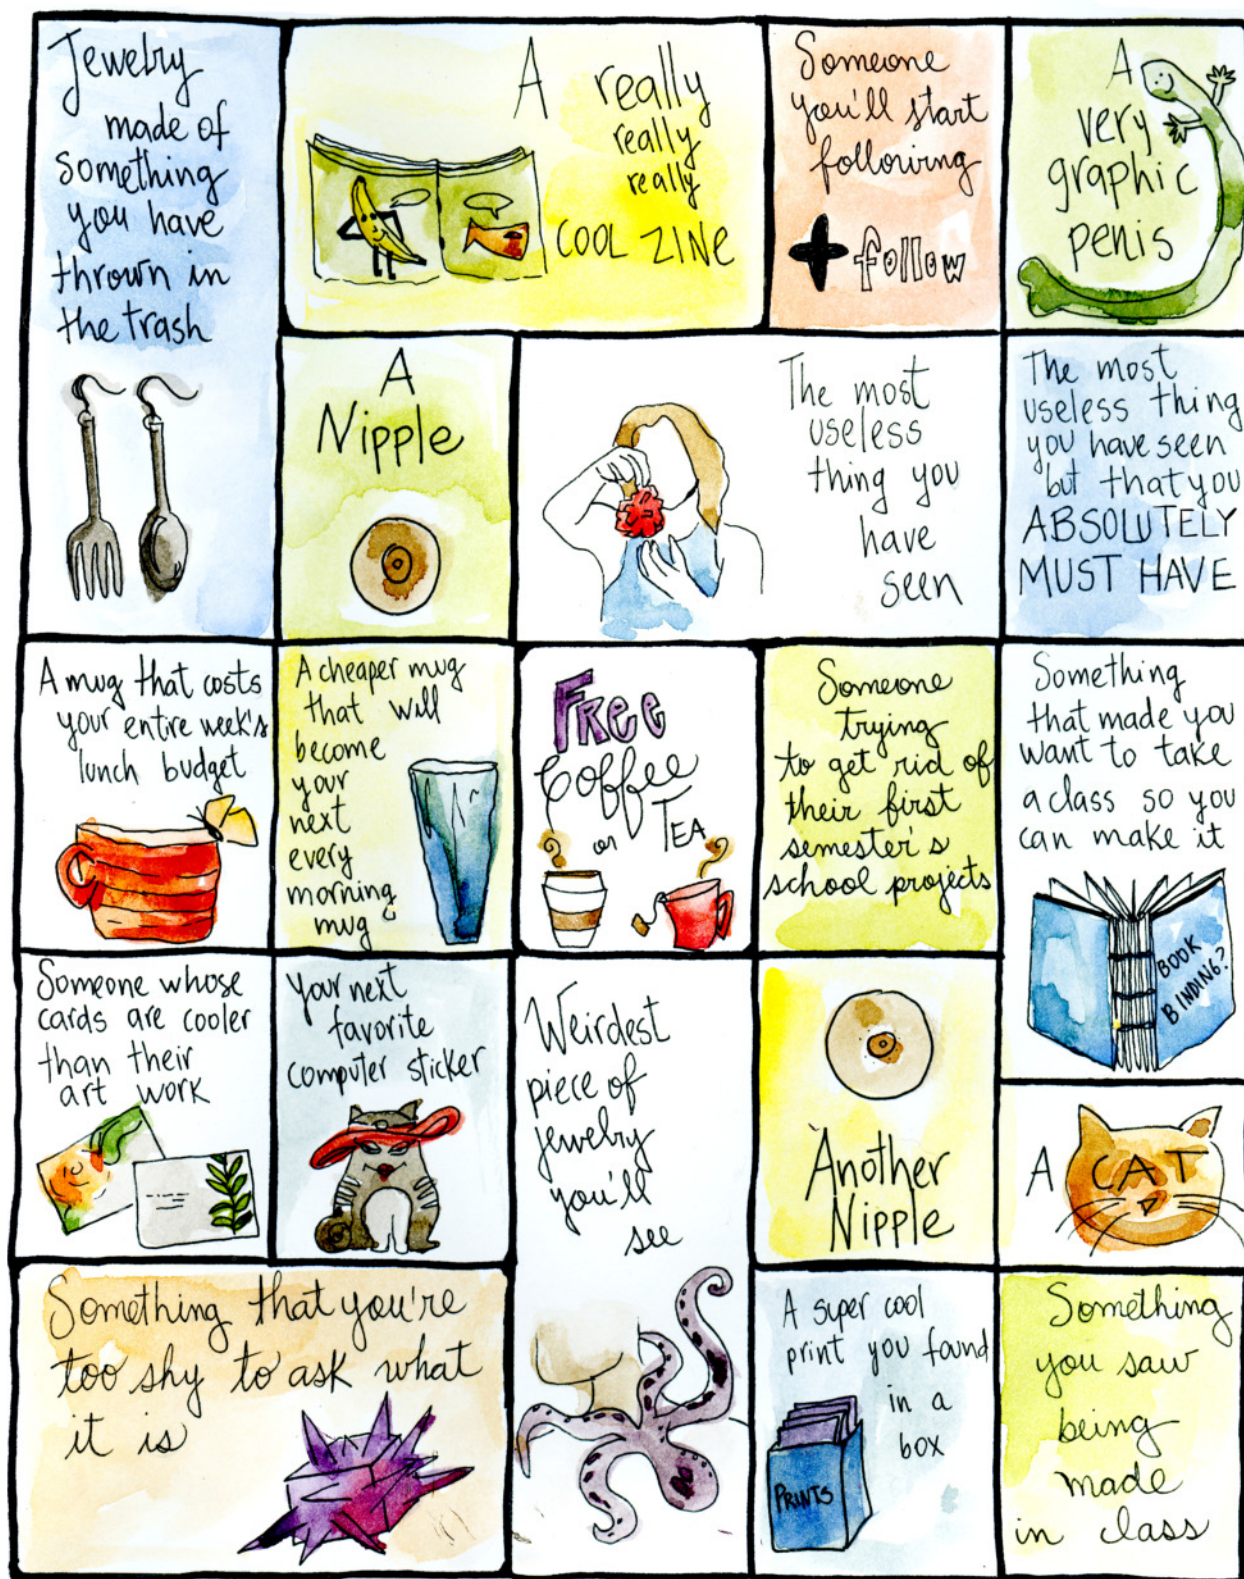 Jewelry
made of
something
you have
thrown in
the trash
A really
really
really
COOL ZINE
Someone
you'll start
following
+ follow
A
very
graphic
penis
A
Nipple
The most
useless
thing you
have
seen
The most
useless thing
you have seen
but that you
ABSOLUTELY
MUST HAVE
A mug that costs
your entire week's
lunch budget
A cheaper mug
that will
become
your
next
every
morning
mug
FRee
Coffee
or TEA
Someone
trying
to get rid of
their first
semester's
school projects
Something
that made you
want to take
a class so you
can make it
BOOK
BINDING?
Someone whose
cards are cooler
than their
art work
your next
favorite
computer sticker
Weirdest
piece of
jewelry
you'll
see
Another
Nipple
A CAT
Something that you're
too shy to ask what
it is
A super cool
print you found
in a
box
PRINTS
Something
you saw
being
made
in class